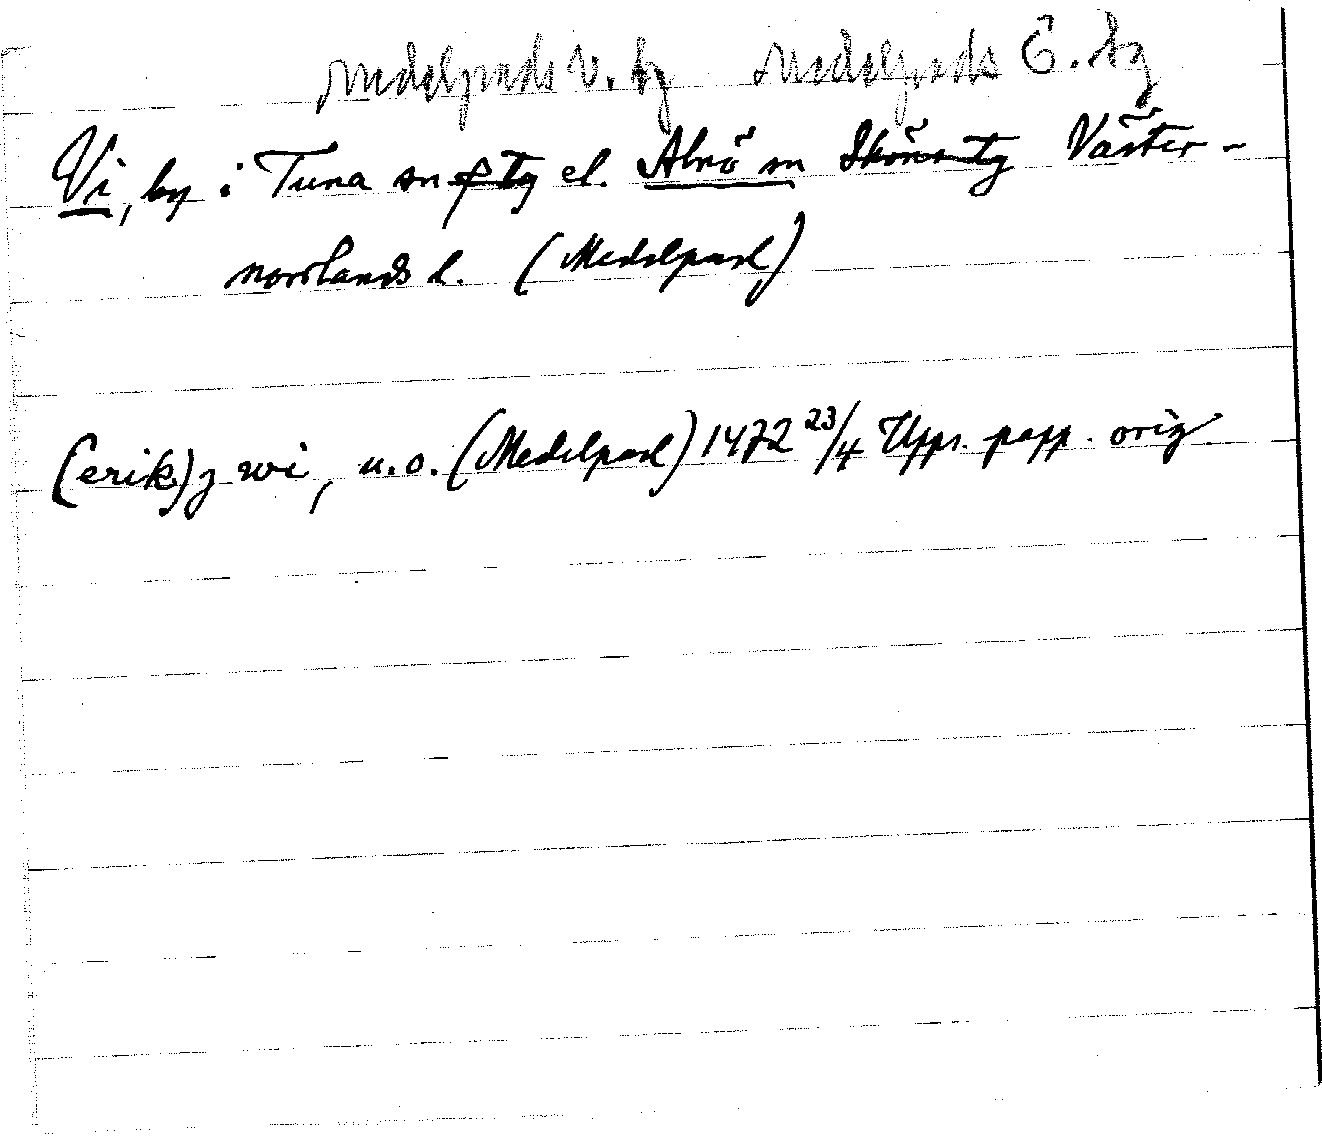 Medelpads V. tg Medelpads Ö. tg
Vi, by i Tuna sn o tg el. Alnö sn Sköns tg Väster-
norrlands l. (Medelpad)
(erik) j wi, u.o. (Medelpad) 1472 23/4 Upps. papp. orig.